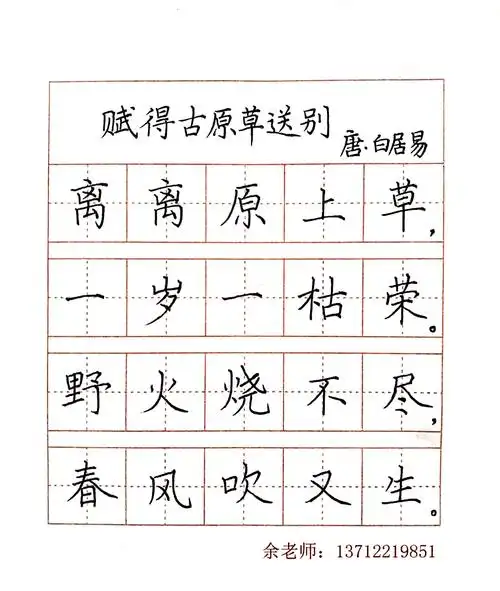 赋得古原草送别
唐·白居易
离离原上草，
一岁一枯荣。
野火烧不尽，
春风吹又生。
余老师：13712219851